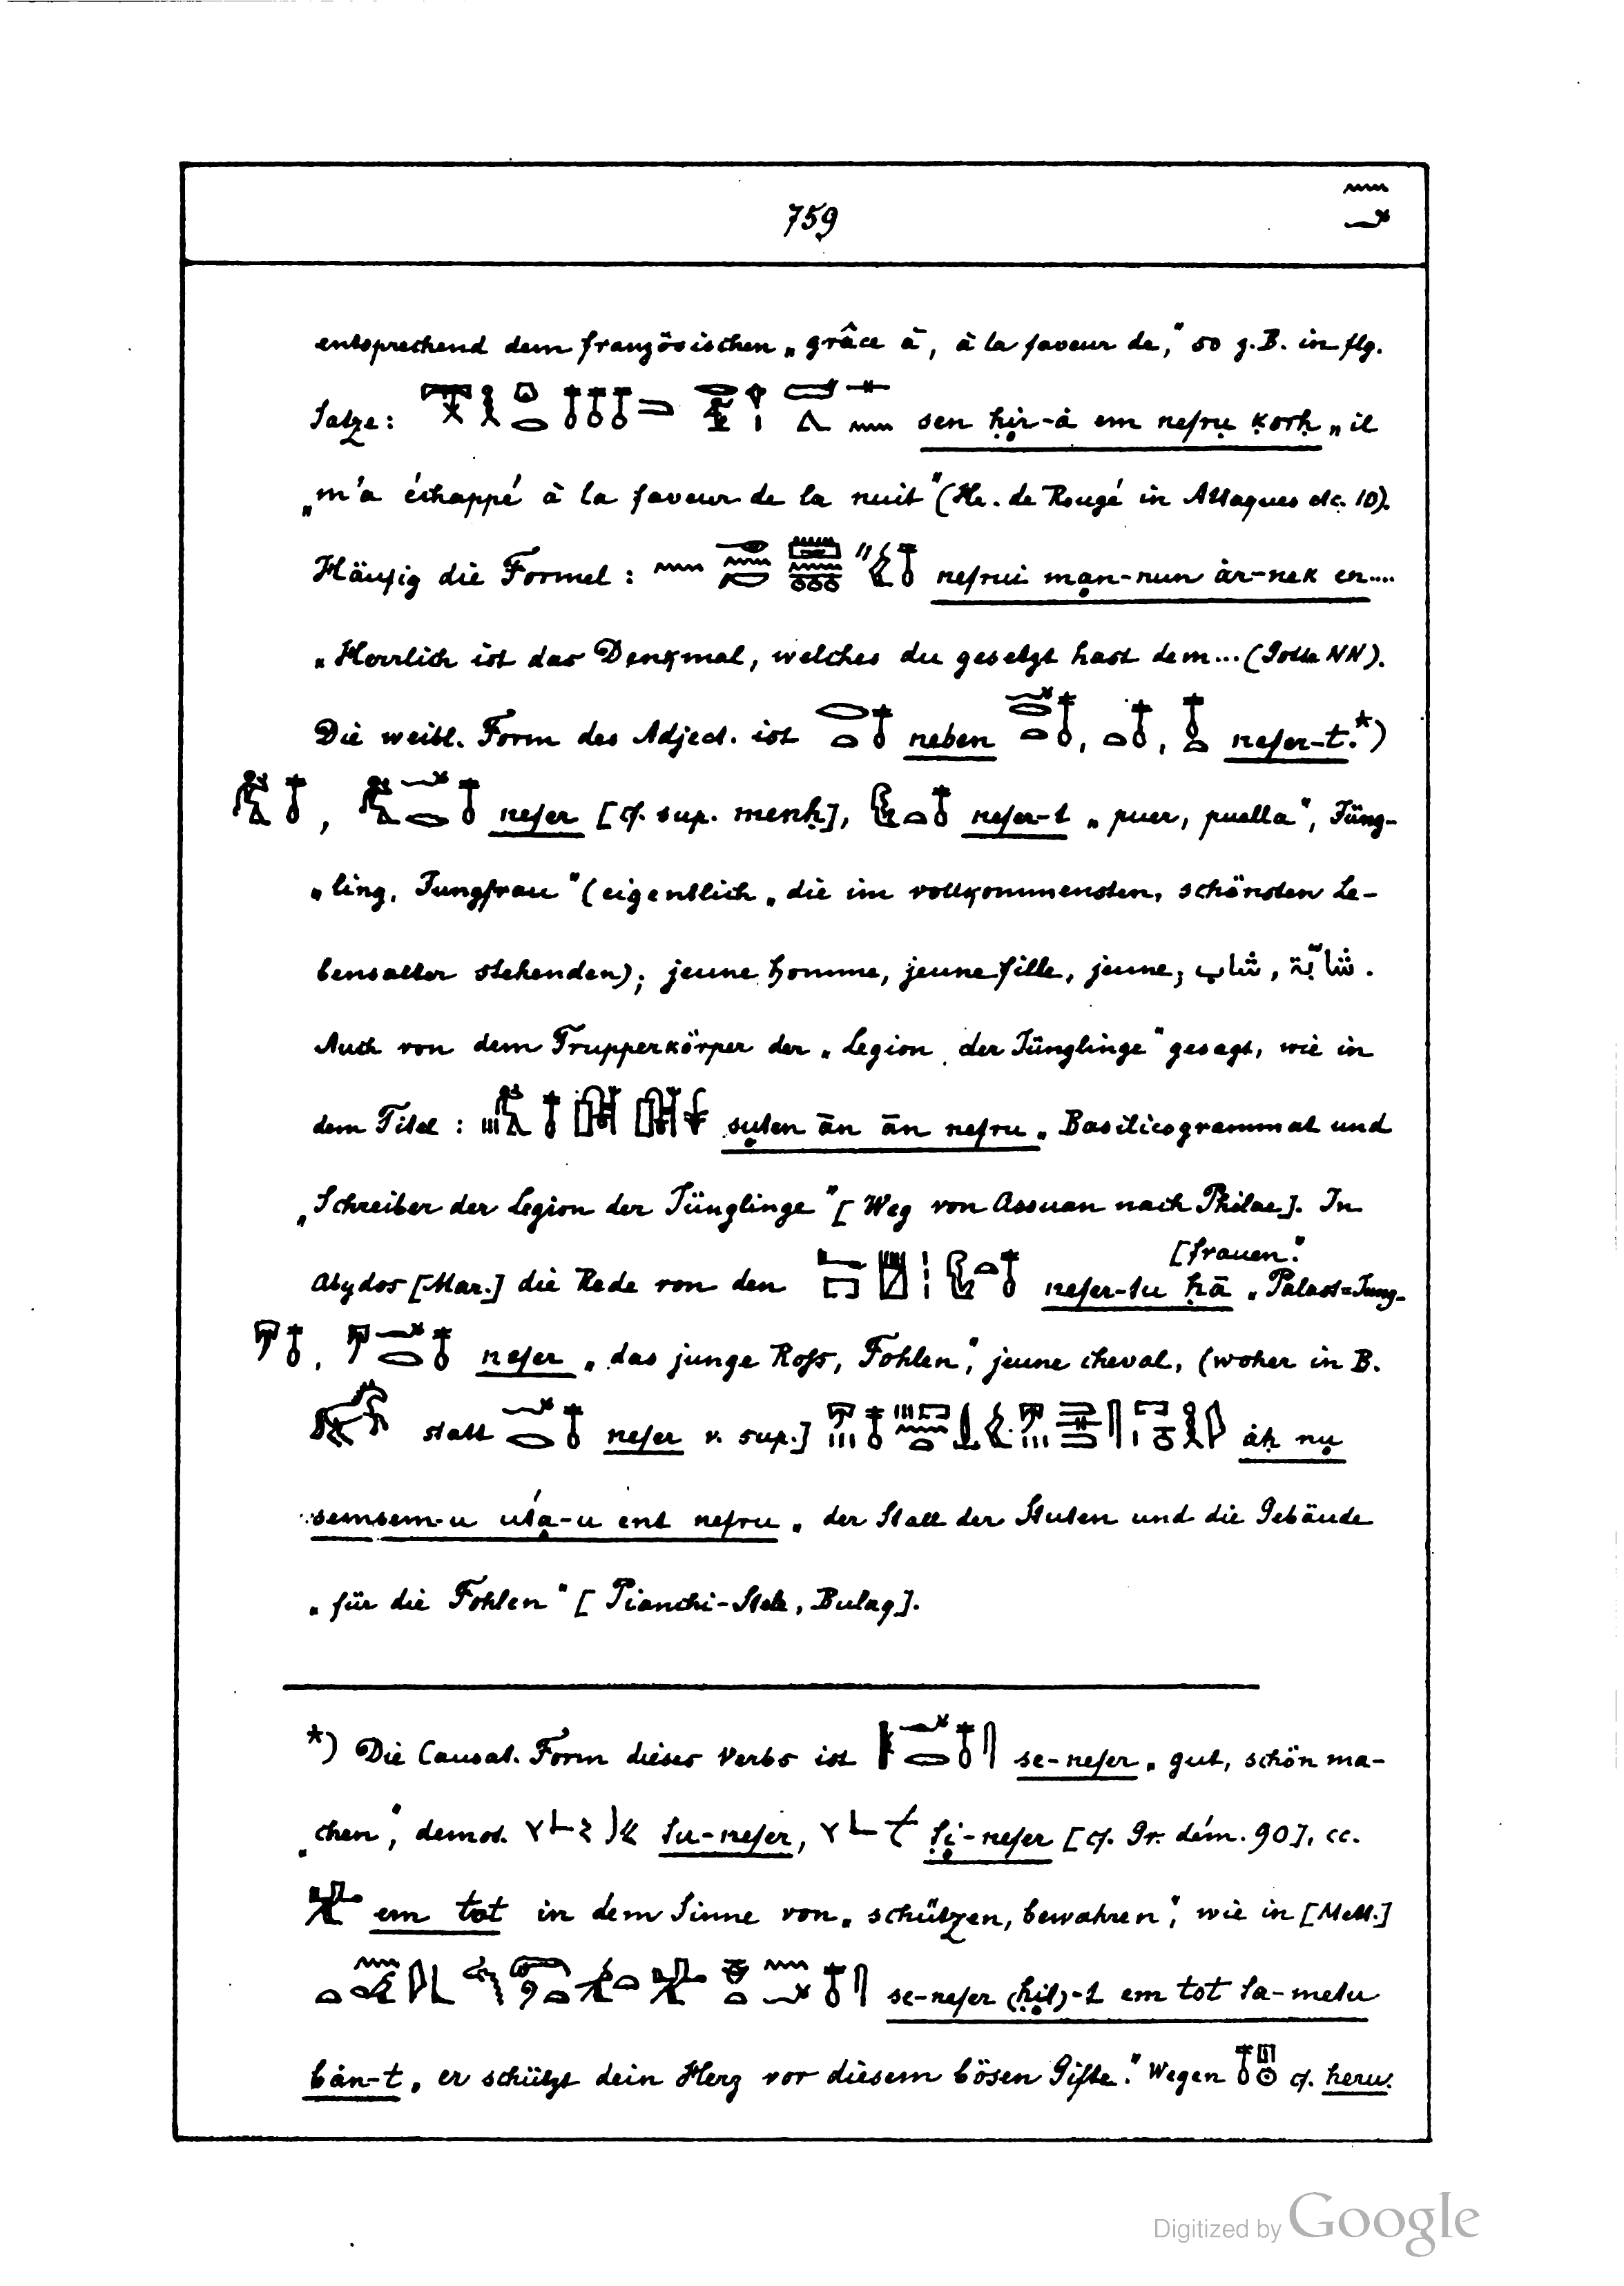 759
entsprechend dem französischen „grâce à, à la faveur de,“ so z. B. in flg.
Satze: sen ḥir-à em nefru ḳorḥ „il
„m'a échappé à la faveur de la nuit“ (He. de Rougé in Attaques etc. 10).
Häufig die Formel: nefrui man-nun àr-nek en....
„Herrlich ist das Denkmal, welches du gesetzt hast dem... (Gotte NN).
Die weibl. Form des Adject. ist neben , , nefer-t.*)
, nefer [cf. sup. menḥ], nefer-t „puer, puella“, Jüng-
„ling, Jungfrau“ (eigentlich „die im vollkommensten, schönsten Le-
bensalter stehenden); jeune homme, jeune fille, jeune; شاب, شابّة.
Auch von dem Truppenkörper der „Legion der Jünglinge“ gesagt, wie in
dem Titel: suten ān ān nefru „Basilicogrammat und
„Schreiber der Legion der Jünglinge“ [Weg von Assuan nach Philae]. In
Abydos [Mar.] die Rede von den nefer-tu ḥā „Palast=Jung-
[frauen.“
, nefer „das junge Roß, Fohlen“, jeune cheval, (woher in B.
statt nefer v. sup.] àḥ nu
semsem-u uťa-u ent nefru „der Stall der Stuten und die Gebäude
„für die Fohlen“ [Pianchi-Stele, Bulaq].
*) Die Causat. Form dieses Verbs ist se-nefer „gut, schön ma-
„chen“, demot. su-nefer, si-nefer [cf. Gr. dém. 90], cc.
em tot in dem Sinne von „schützen, bewahren“, wie in [Mett.]
se-nefer (ḥit)-t em tot ta-metu
bàn-t „er schützt dein Herz vor diesem bösen Gifte.“ Wegen cf. heru.
Digitized by Google